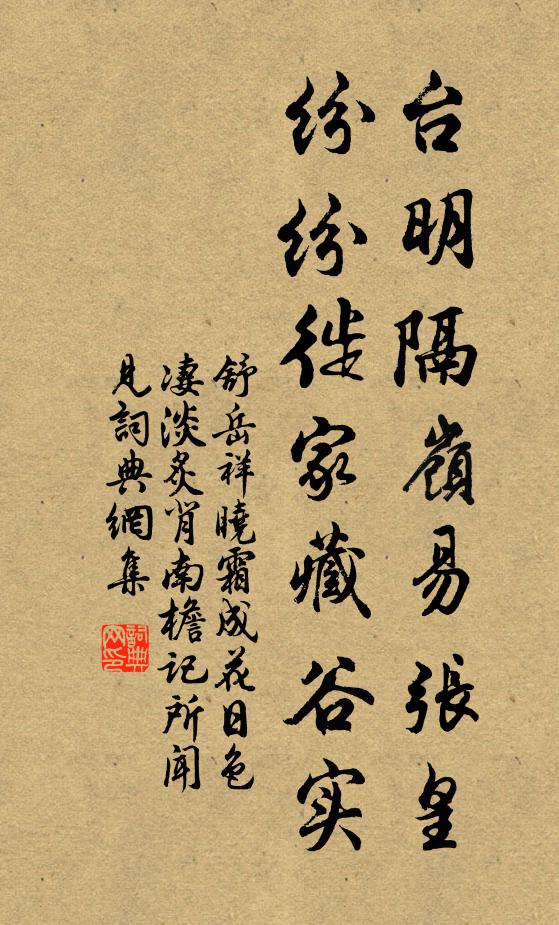 台明隔嶺易張皇
紛紛徙家藏谷实
舒岳祥曉霜成花日色
凄淡炙肖南檐记所闻
見詞典網集
詞典网印